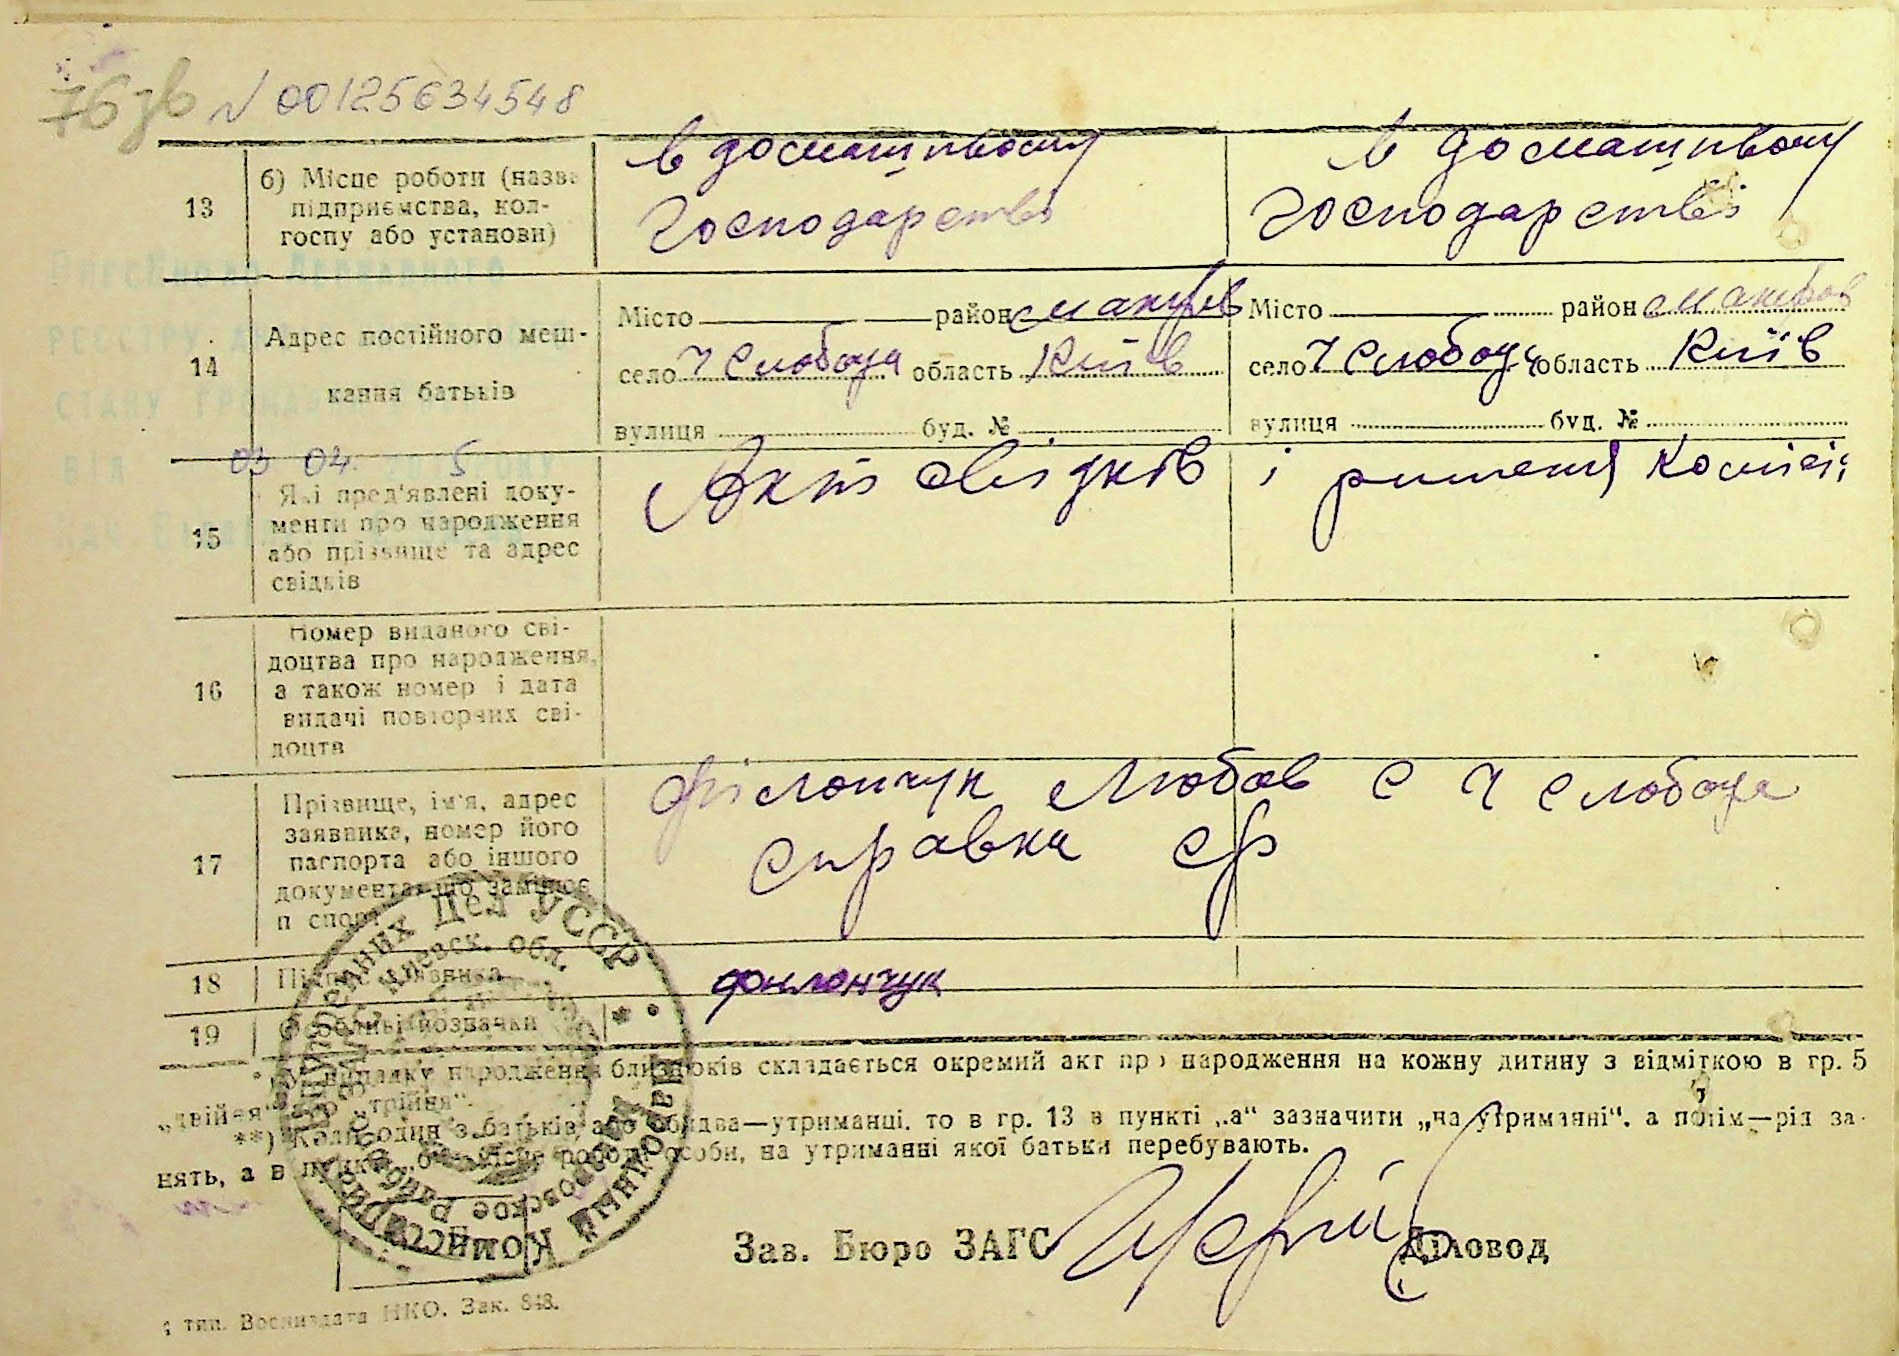 76 зв № 00125634548
13
б) Місце роботи (назва
підприємства, кол-
госпу або установи)
в домашньому
господарстві
в домашньому
господарстві
14
Адрес постійного меш-
кання батьків
Місто район Макарів
село Ч Слобода область Київ
вулиця буд. №
Місто район Макаров
село Ч Слобода область Київ
вулиця буд. №
Державного
03 04 5 року
15
Які пред'явлені доку-
менти про народження
або прізвище та адрес
свідків
Акт свідків і рішення комісії
16
Номер виданого сві-
доцтва про народження,
а також номер і дата
видачі повторних сві-
доцтв
17
Прізвище, ім'я, адрес
заявника, номер його
паспорта або іншого
документа що замінює
паспорт
Філончук Любов с Ч Слобода
справка ср
18
Підпис заявника
Филончук
19
Особливі позначки
*) У випадку народження близнюків складається окремий акт про народження на кожну дитину з відміткою в гр. 5
„двійня“ або „трійня“.
**) Коли один з батьків, або обидва—утриманці, то в гр. 13 в пункті „а“ зазначити „на утриманні“, а потім—рід за-
нять, а в пункті „б“ місце роботи особи, на утриманні якої батьки перебувають.
Народный Комиссариат Внутренних Дел УССР
Киевск. обл.
Зав. Бюро ЗАГС Діловод
тип. Воениздата НКО. Зак. 848.